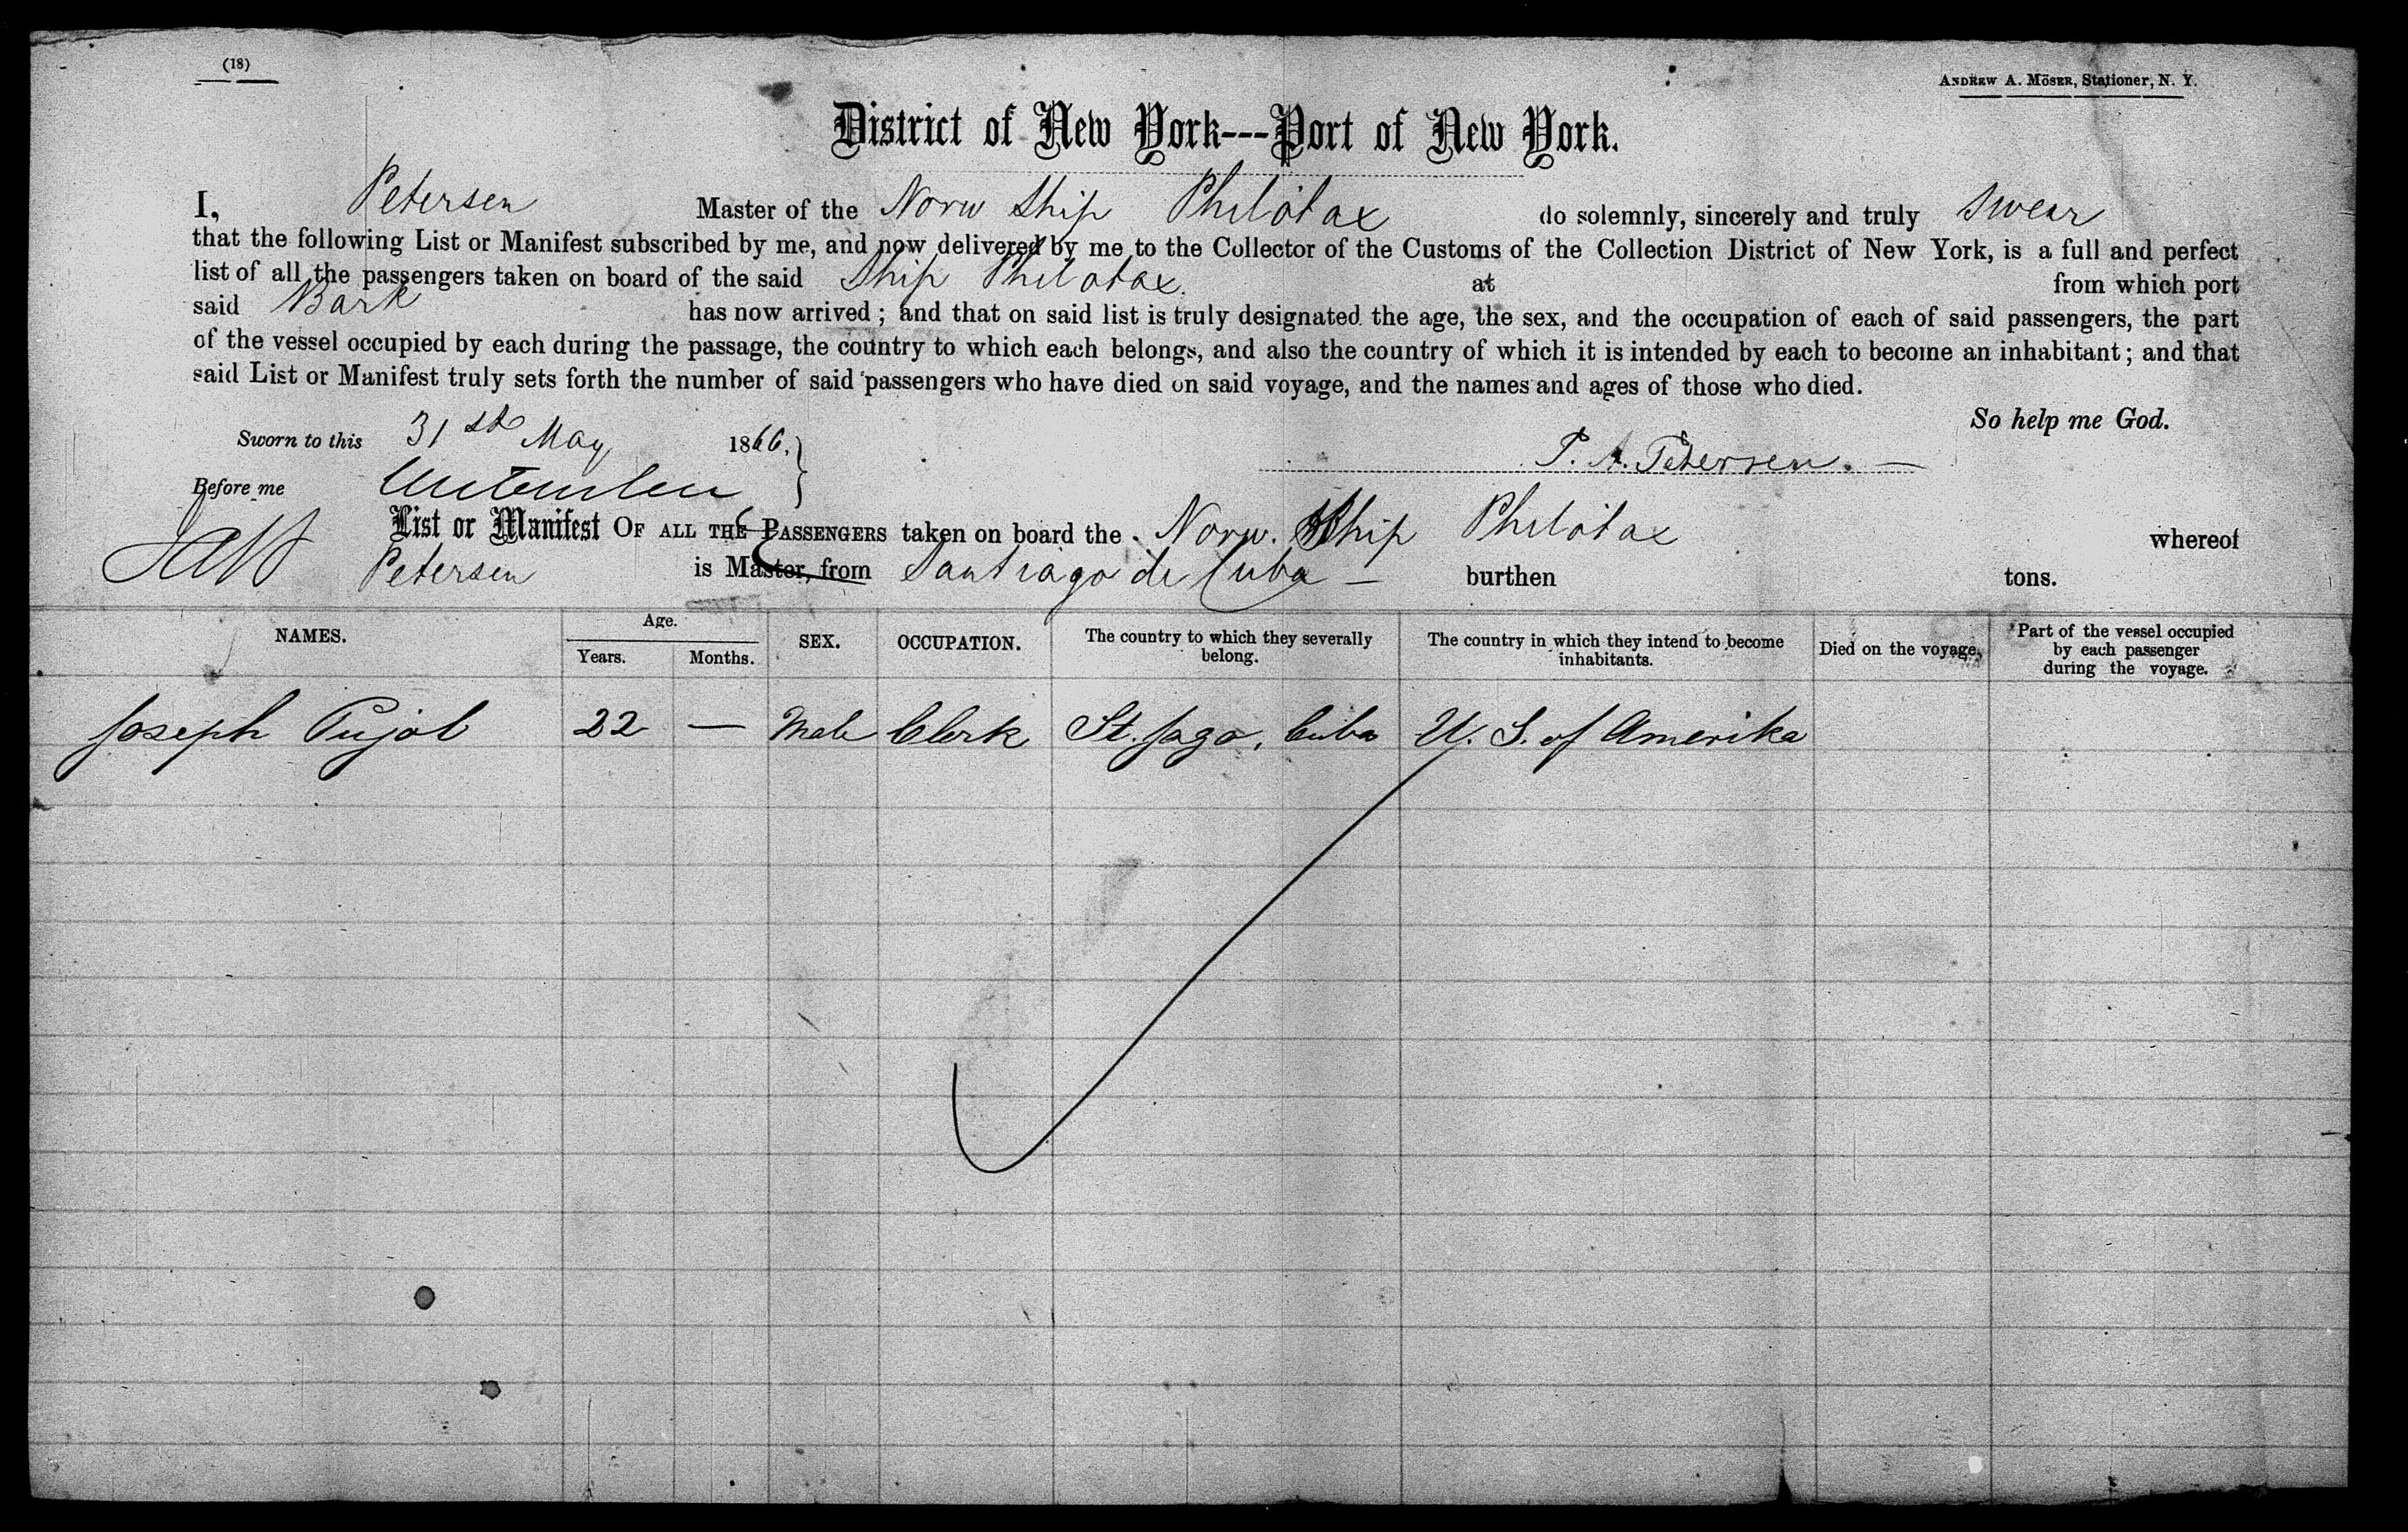 (18)
ANDREW A. MÖSER, Stationer, N. Y.
District of New York---Port of New York.
I, Petersen Master of the Norw Ship Philotax do solemnly, sincerely and truly swear
that the following List or Manifest subscribed by me, and now delivered by me to the Collector of the Customs of the Collection District of New York, is a full and perfect
list of all the passengers taken on board of the said Ship Philotax. at from which port
said Bark has now arrived ; and that on said list is truly designated the age, the sex, and the occupation of each of said passengers, the part
of the vessel occupied by each during the passage, the country to which each belongs, and also the country of which it is intended by each to become an inhabitant ; and that
said List or Manifest truly sets forth the number of said passengers who have died on said voyage, and the names and ages of those who died.
So help me God.
Sworn to this 31st May 1866,
P. A. Petersen.
Before me
List or Manifest OF ALL THE PASSENGERS taken on board the Norw. Ship Philotax whereof
Petersen is Master, from Santiago de Cuba — burthen tons.
NAMES. Age. Years. Months. SEX. OCCUPATION. The country to which they severally belong. The country in which they intend to become inhabitants. Died on the voyage. Part of the vessel occupied by each passenger during the voyage.
Joseph Pujol 22 — Male Clerk St. Jago, Cuba U. S. of Amerika